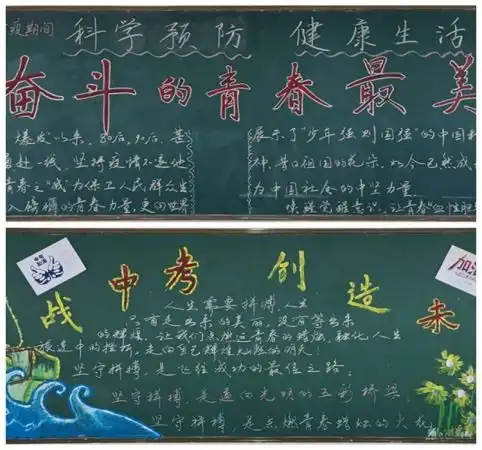 疫期间 科学预防 健康生活
奋斗的青春最美
爆发以来，80后，90后，甚
一线，坚持疫情不退他
青春之"我"为保卫人民群众生
入磅礴的青春力量，更向世界
展示了"少年强则国强"的中国
昔日祖国的花朵，如今已然成
为中国社会的中坚力量
唤醒觉醒意识，让青春
战中考 创造未
加油
人生需要拼搏，人生
只有走出来的美丽，没有等出来
的辉煌，让我们点燃青春的
走向自己辉煌灿烂的明天！
坚守拼搏，是飞往成功的最佳之路；
坚守拼搏，是通向光明的五彩桥梁；
坚守拼搏，是点燃青春增灿的火花